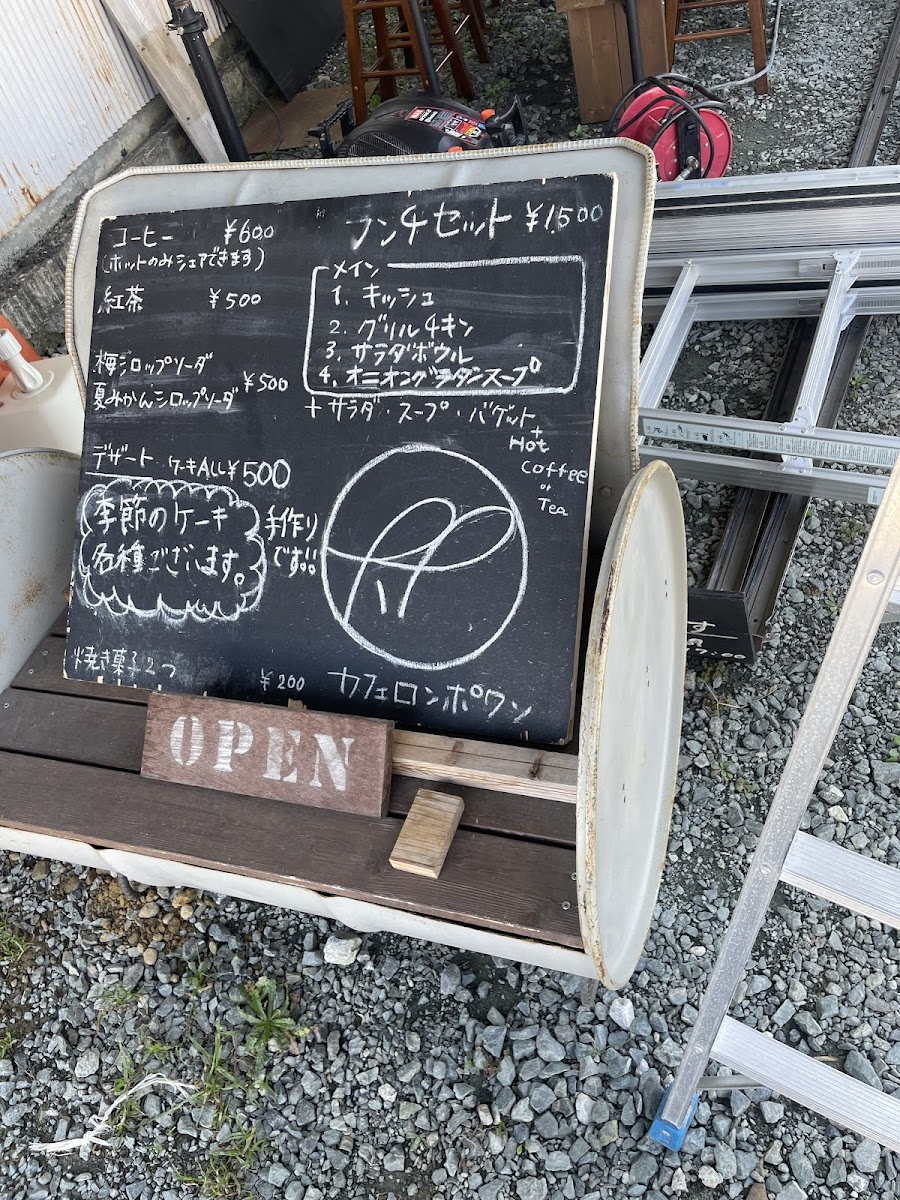 コーヒー ¥600
(ホットのみシェアできます)
紅茶 ¥500
梅シロップソーダ
夏みかんシロップソーダ ¥500
デザート ケーキALL¥500
季節のケーキ
各種ございます。
手作り
です!!
焼き菓子2つ ¥200
ランチセット ¥1,500
メイン
1. キッシュ
2. グリルチキン
3. サラダボウル
4. オニオングラタンスープ
+ サラダ・スープ・バゲット
+
Hot
Coffee
or
Tea
カフェロンポワン
OPEN